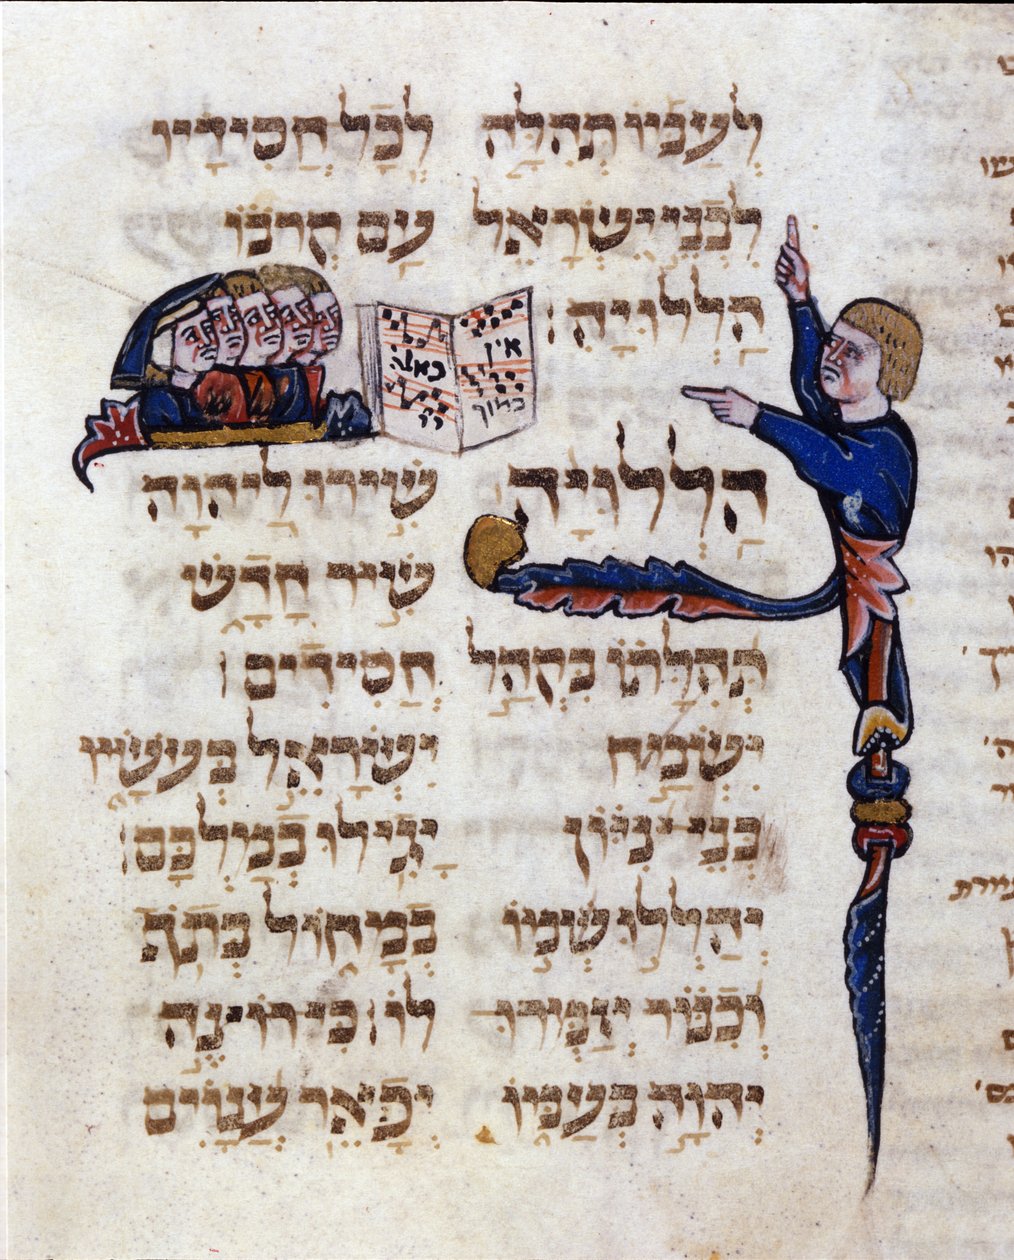 לְעַמּוֹ תְּהִלָּה לְכָל חֲסִידָיו
לִבְנֵי יִשְׂרָאֵל עַם קְרֹבוֹ
הַלְלוּיָהּ׃
הַלְלוּיָהּ שִׁירוּ לַיהוָה
שִׁיר חָדָשׁ
תְּהִלָּתוֹ בִּקְהַל חֲסִידִים׃
יִשְׂמַח יִשְׂרָאֵל בְּעֹשָׂיו
בְּנֵי צִיּוֹן יָגִילוּ בְמַלְכָּם׃
יְהַלְלוּ שְׁמוֹ בְמָחוֹל בְּתֹף
וְכִנּוֹר יְזַמְּרוּ לוֹ׃ כִּי רוֹצֶה
יְהוָה בְּעַמּוֹ יְפָאֵר עֲנָוִים